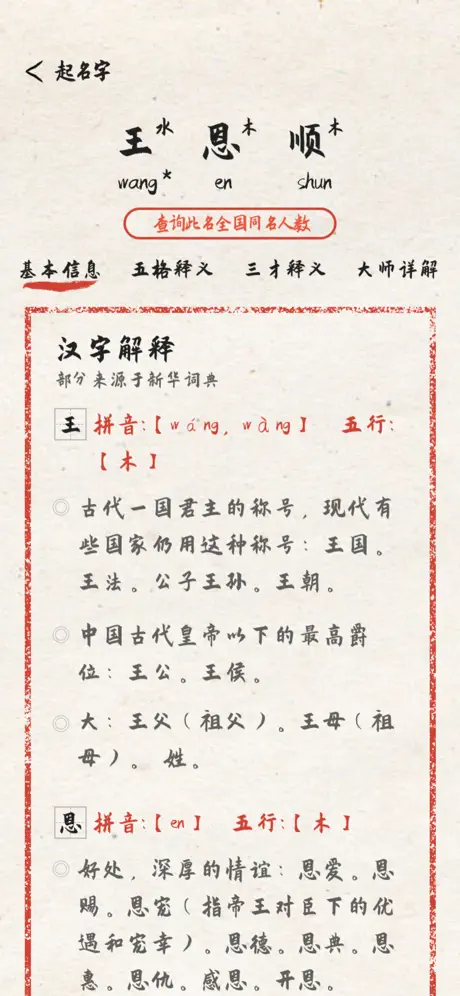 < 起名字
王水 恩木 顺木
wang* en shun
查询此名全国同名人数
基本信息 五格释义 三才释义 大师详解
汉字解释
部分来源于新华词典
王 拼音:【wáng, wàng】 五行:
【木】
古代一国君主的称号，现代有
些国家仍用这种称号：王国。
王法。公子王孙。王朝。
中国古代皇帝以下的最高爵
位：王公。王侯。
大：王父（祖父）。王母（祖
母）。 姓。
恩 拼音:【en】 五行:【木】
好处，深厚的情谊：恩爱。恩
赐。恩宠（指帝王对臣下的优
遇和宠幸）。恩德。恩典。恩
惠。恩仇。感恩。开恩。